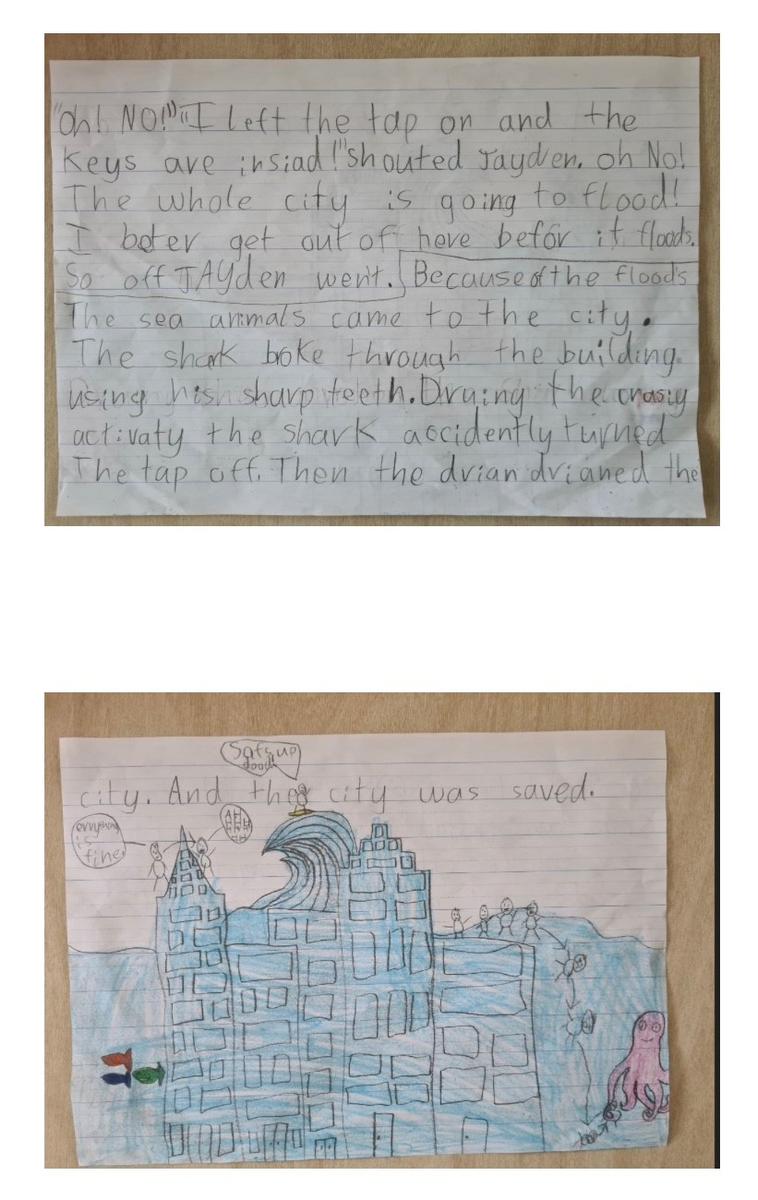 "Oh! NO!" "I left the tap on and the
keys are insiad!" shouted Jayden. oh No!
The whole city is going to flood!
I beter get out of here befor it floods.
So off JAYden went. Because of the floods
The sea animals came to the city.
The shark broke through the building
using his sharp teeth. Druing the crasiy
activaty the shark accidently turned
The tap off. Then the drian drianed the
Safs up
dood!
city. And the city was saved.
evrything
is
fine